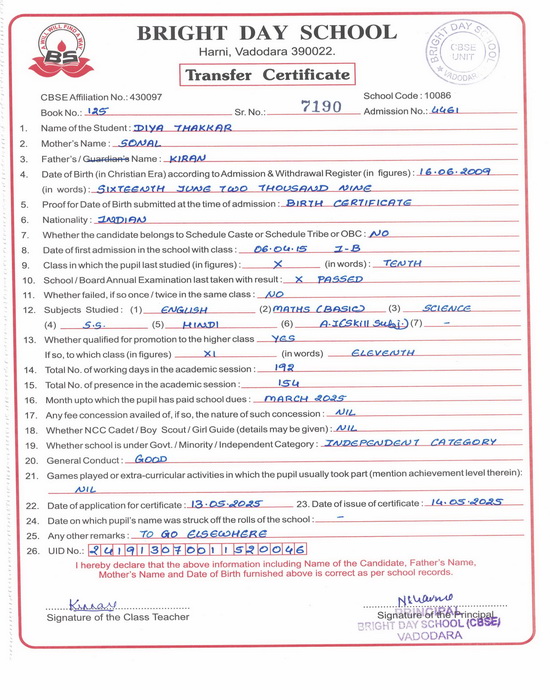 A WILL WILL FIND A WAY
BS
BRIGHT DAY SCHOOL
Harni, Vadodara 390022.
BRIGHT DAY SCHOOL
CBSE
UNIT
VADODARA
Transfer Certificate
CBSE Affiliation No.: 430097 School Code : 10086
Book No.: 125 Sr. No.: 7190 Admission No.: 4461
1. Name of the Student : DIYA THAKKAR
2. Mother's Name : SONAL
3. Father's / Guardian's Name : KIRAN
4. Date of Birth (in Christian Era) according to Admission & Withdrawal Register (in figures) : 16.06.2009
(in words) : SIXTEENTH JUNE TWO THOUSAND NINE
5. Proof for Date of Birth submitted at the time of admission : BIRTH CERTIFICATE
6. Nationality : INDIAN
7. Whether the candidate belongs to Schedule Caste or Schedule Tribe or OBC : NO
8. Date of first admission in the school with class : 06.04.15 I-B
9. Class in which the pupil last studied (in figures) : X (in words) : TENTH
10. School / Board Annual Examination last taken with result : X PASSED
11. Whether failed, if so once / twice in the same class : NO
12. Subjects Studied : (1) ENGLISH (2) MATHS (BASIC) (3) SCIENCE
(4) S.S. (5) HINDI (6) A.I (Skill Subj.) (7) -
13. Whether qualified for promotion to the higher class YES
If so, to which class (in figures) XI (in words) ELEVENTH
14. Total No. of working days in the academic session : 192
15. Total No. of presence in the academic session : 154
16. Month upto which the pupil has paid school dues : MARCH 2025
17. Any fee concession availed of, if so, the nature of such concession : NIL
18. Whether NCC Cadet / Boy Scout / Girl Guide (details may be given) : NIL
19. Whether school is under Govt. / Minority / Independent Category : INDEPENDENT CATEGORY
20. General Conduct : GOOD
21. Games played or extra-curricular activities in which the pupil usually took part (mention achievement level therein):
NIL
22. Date of application for certificate : 13.05.2025 23. Date of issue of certificate : 14.05.2025
24. Date on which pupil's name was struck off the rolls of the school : -
25. Any other remarks : TO GO ELSEWHERE
26. UID No.: 241913070011520046
I hereby declare that the above information including Name of the Candidate, Father's Name,
Mother's Name and Date of Birth furnished above is correct as per school records.
Signature of the Class Teacher
Signature of the Principal
PRINCIPAL
BRIGHT DAY SCHOOL (CBSE)
VADODARA